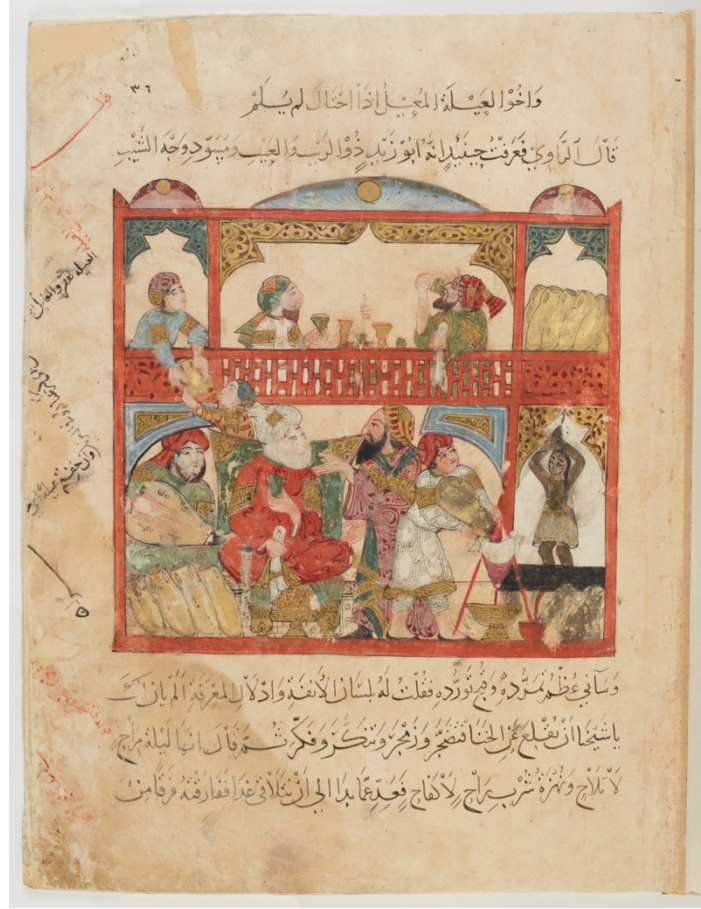 ٣٦
وَاخُوْا العَيْلَةِ المُعِيْلُ اذَا احْتَالَ لم يُلَمْ
قَالَ الرَّاوِيْ فَعَرَفْتُ حِينَئِذٍ انَّهُ ابُوْ زَيْدٍ ذُوْ الرَيْبِ وَالعَيْبِ وَمُسَوِّد وَجْهِ الشَّيْبِ
وَسَآنِيْ عُظْمُ تَمَرُّدِهِ وَقُبْحُ تَوَرُّدِهِ فَقُلْتُ لَهُ بِلِسَانِ الأَنَفَةِ وَادْلَالِ المَعْرِفَةِ أَلَمْ يَانِ لَكَ
يَا شَيْخَنَا انْ تُقْلِعَ عَنِ الخَنَا فَتَضَجَّرَ وَزَمْجَرَ وَتَنَكَّرَ وَفَكَّرَ ثُمَّ قَالَ انَّهَا لَيْلَةُ مِرَاحٍ
لَا تَلَاحٍ وَنُهْزَةُ شُرْبِ رَاحٍ لَا كِفَاحٍ فَعَدِّ عَمَّا بَدَا الى أنْ نَتَلَاقَى غَدًا فَفَارَقْتُهُ فَرَقًا مِنْ